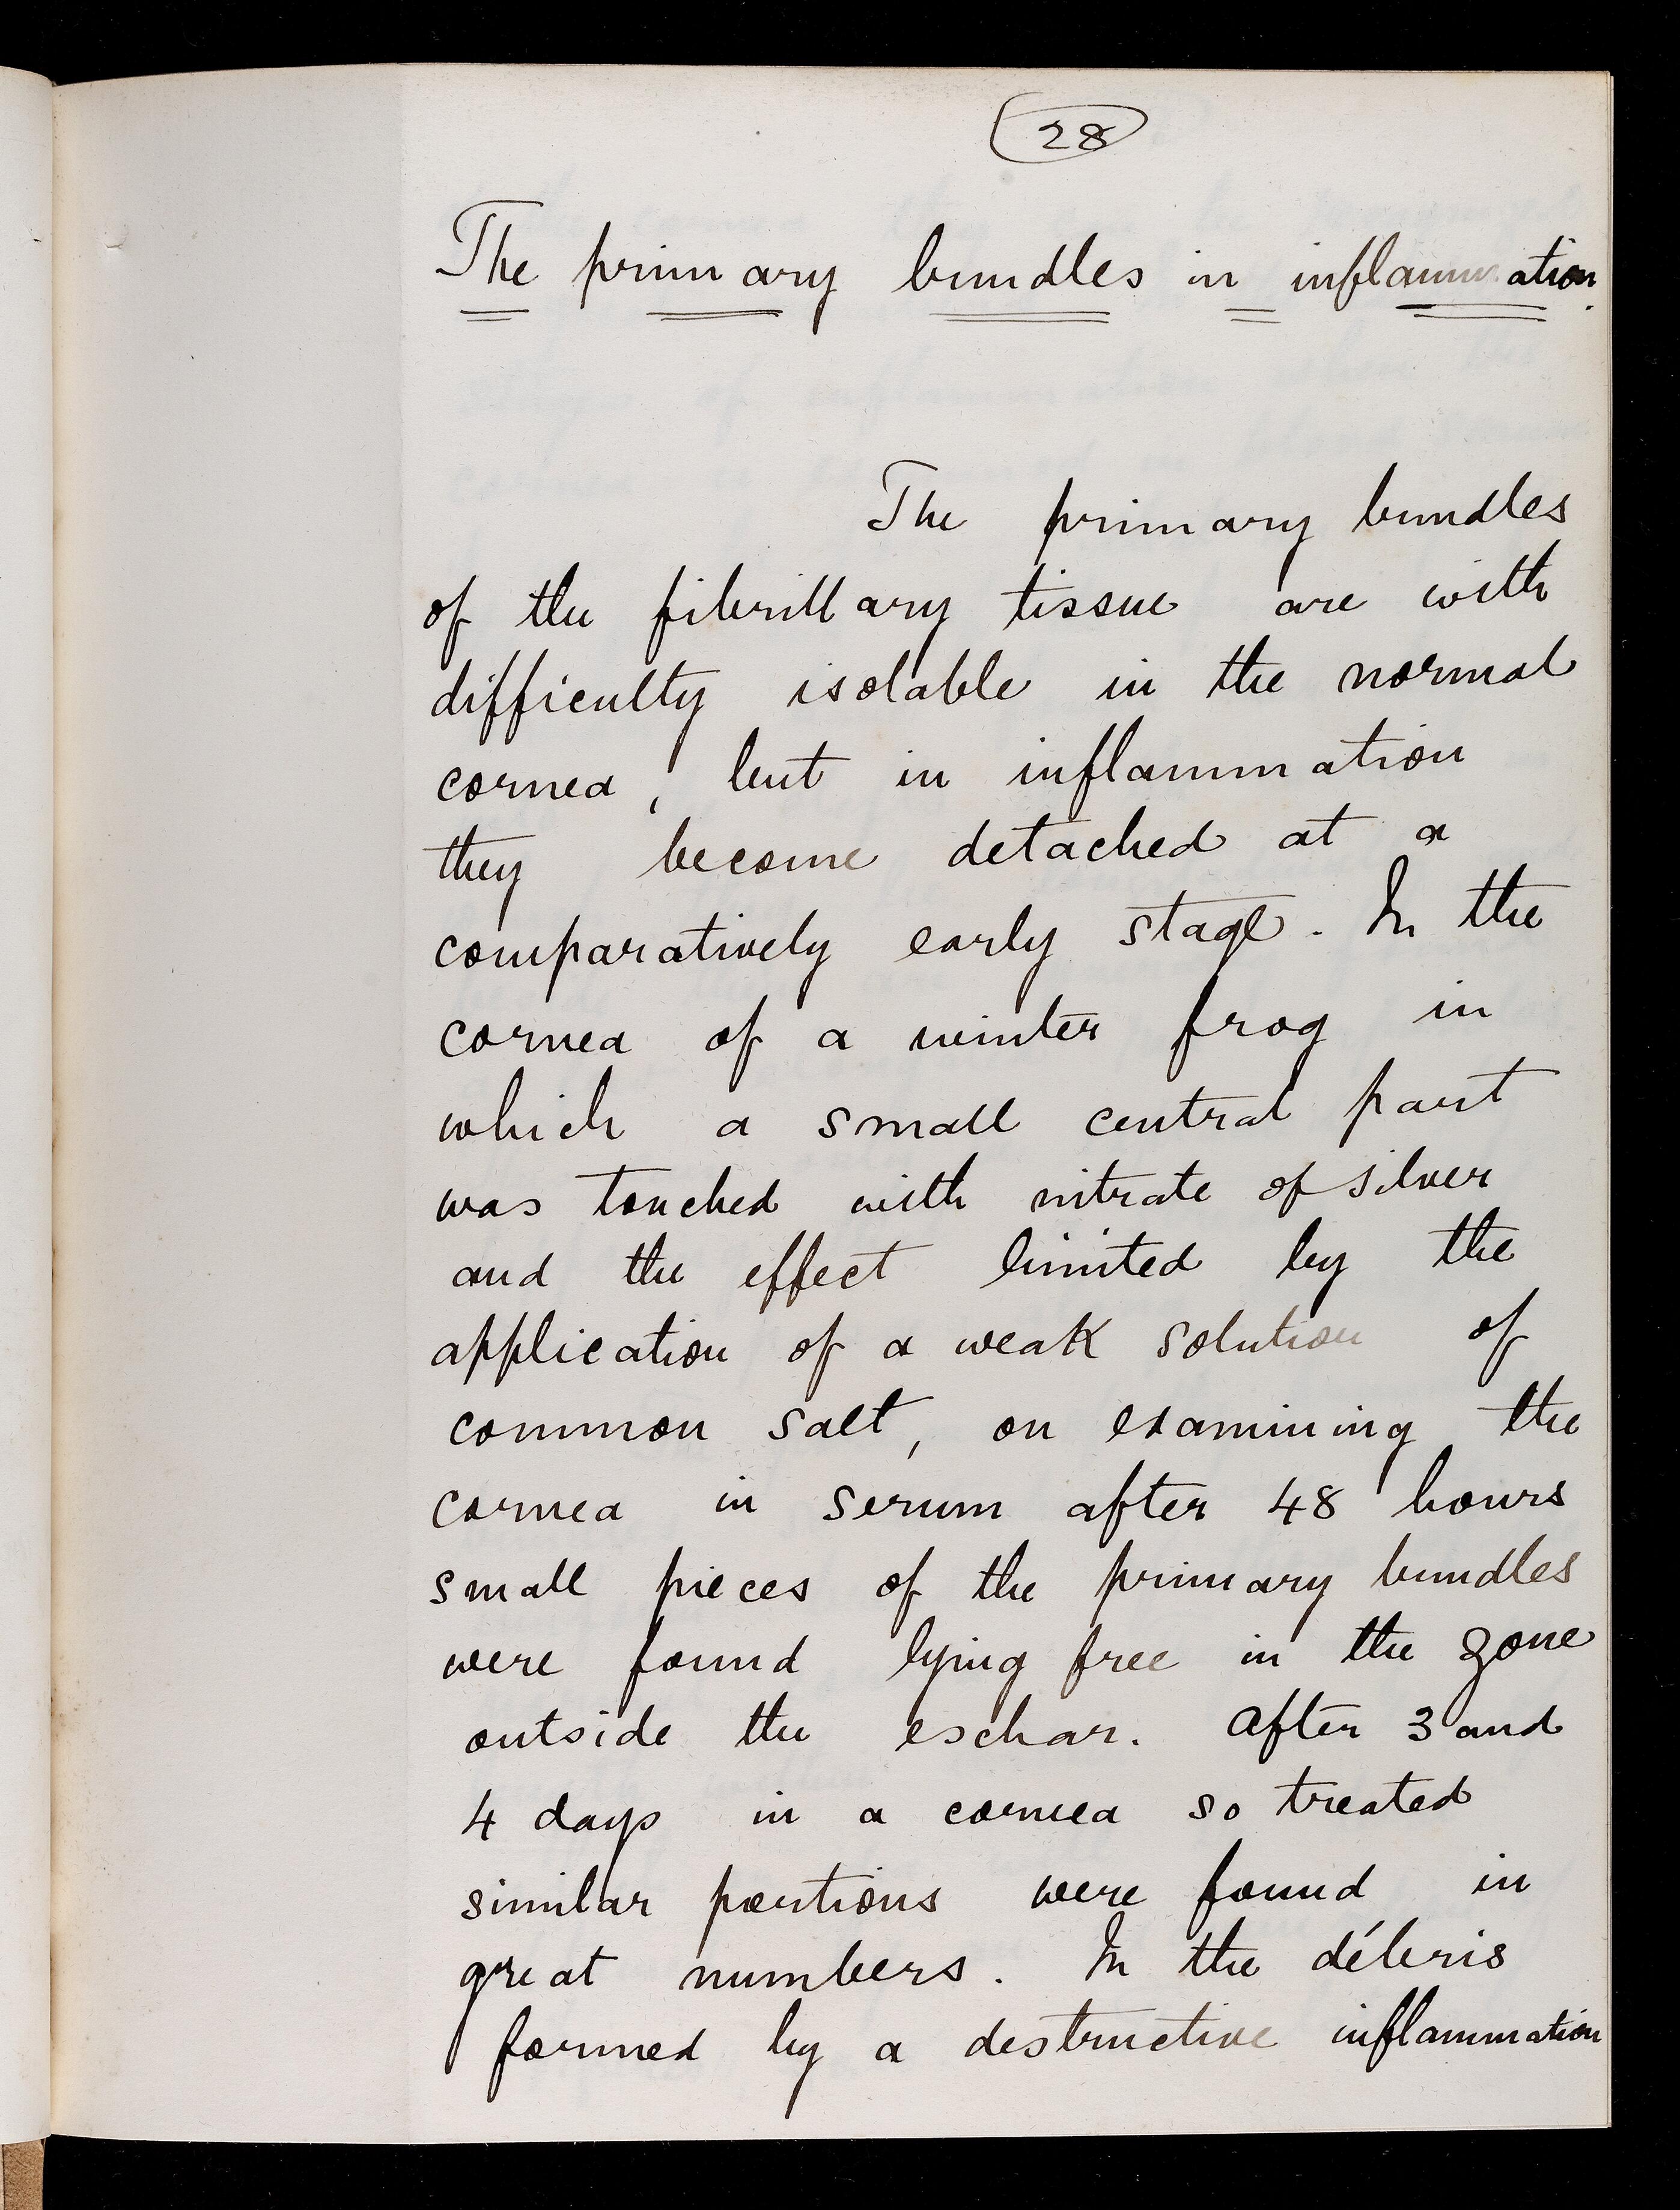 28
The primary bundles in inflammation.
The primary bundles
of the fibrillary tissue are with
difficulty isolable in the normal
cornea, but in inflammation
they become detached at a
comparatively early stage. In the
cornea of a winter frog in
which a small central part
was touched with nitrate of silver
and the effect limited by the
application of a weak solution of
common salt, on examining the
cornea in serum after 48 hours
small pieces of the primary bundles
were found lying free in the zone
outside the eschar. After 3 and
4 days in a cornea so treated
similar portions were found in
great numbers. In the débris
formed by a destructive inflammation